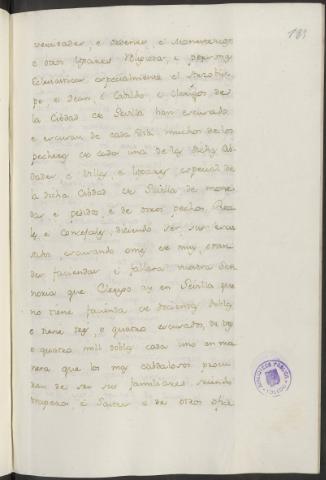 183
Universidades, é Ordenes, é Monesterios
é otros Lugares, é Personas
Eclesiasticas especialmente el Arzobis-
po, é Dean, é Cabildo, é Clerigos de
la Cibdad de Sevilla han escusado
é escusan de cada dia muchos de los
pecheros de cada una de las dichas Cib-
dades, é Villas, é Lugares, especial de
la dicha Cibdad de Sevilla de mone-
das, é pedidos, é de otros pechos Rea-
les, é Concejales, diciendo ser sus escu-
sados, escusando omes de muy gran-
des faciendas, é fallará vuestra Se-
ñoria que Clerigo ay en Sevilla que
no tiene facienda de docientas doblas
é tiene tres, é quatro escusados, de dos
é quatro mil doblas cada uno en ma-
nera que los mas cabdalosos procu-
ran de ser sus familiares siendo
traperos, é Sastres, é de otros ofici
BIBLIOTECA PUBLICA
TOLEDO